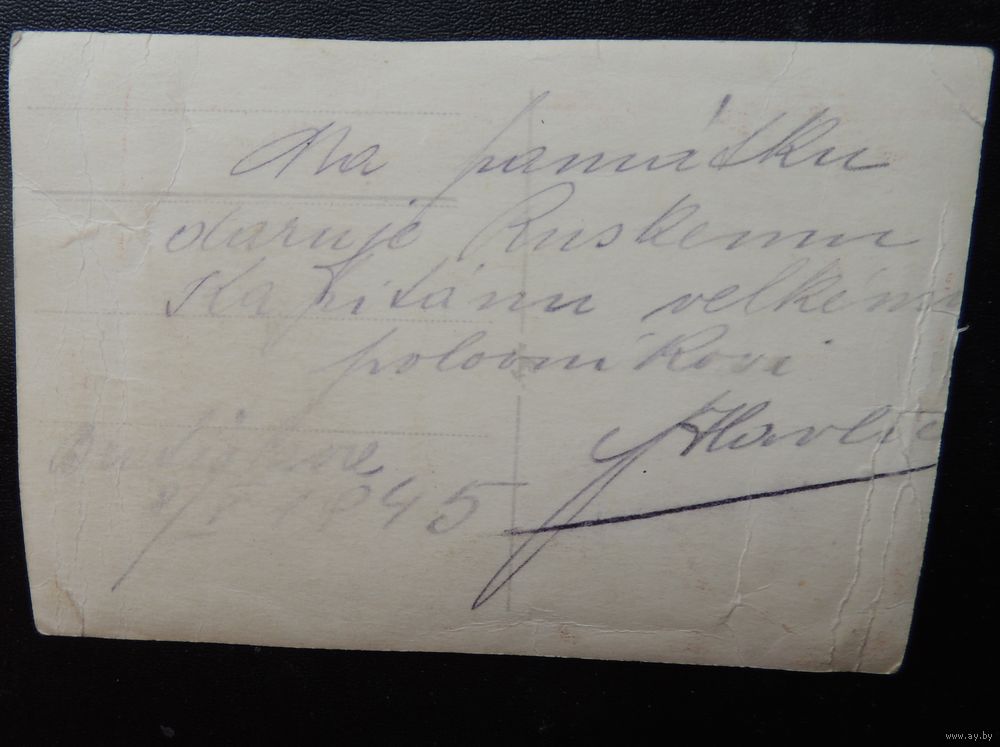 Na památku
daruje Ruskemu
Kapitánu velkému
polovníkovi
JHavlic
1945
www.ay.by